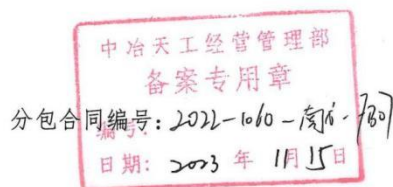 中冶天工经营管理部
备案专用章
编号:
分包合同编号：2022-1060-南分-
日期: 2023 年 11月 15日